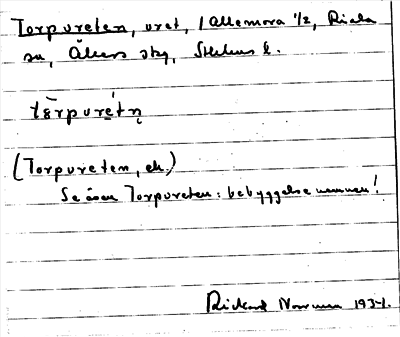 Torpureten, vret, i Allemora 1/2, Riala
sn, Åkers skg, Sthlms l.
tōrpurétn̥
(Torpureten, ek.)
Se även Torpureten: bebyggelsenamnen!
Rickard 1934.